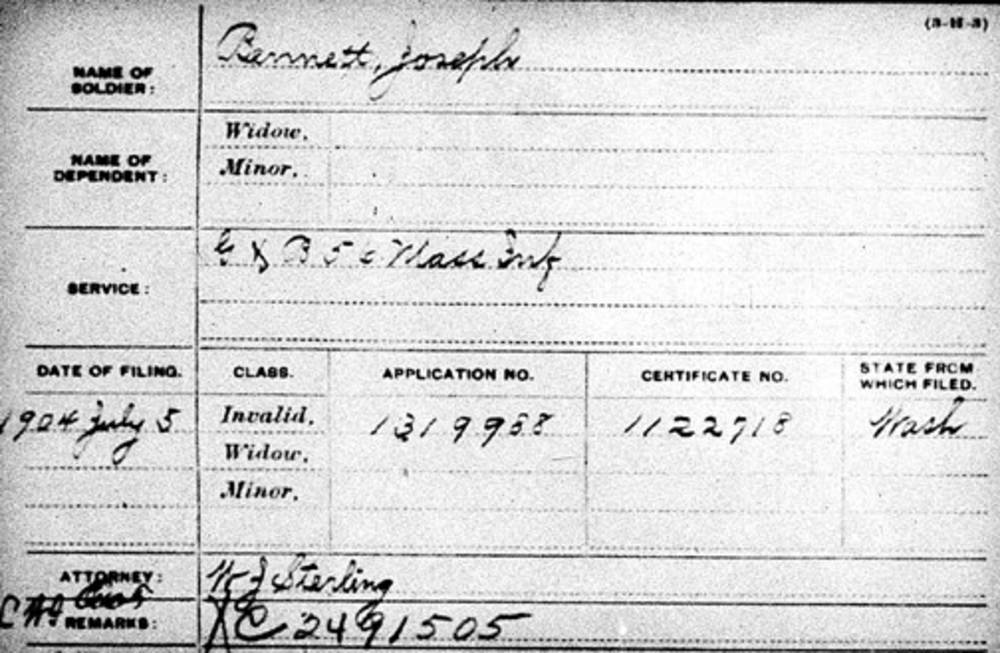 (3-H-3)
NAME OF SOLDIER: Bennett, Joseph
NAME OF DEPENDENT: Widow,
Minor.
SERVICE: G & B 56 Mass Inf
DATE OF FILING. CLASS. APPLICATION NO. CERTIFICATE NO. STATE FROM WHICH FILED.
1904 July 5 Invalid, 1319958 1122718 Wash
Widow,
Minor.
ATTORNEY: W J Sterling
REMARKS: XC 2491505